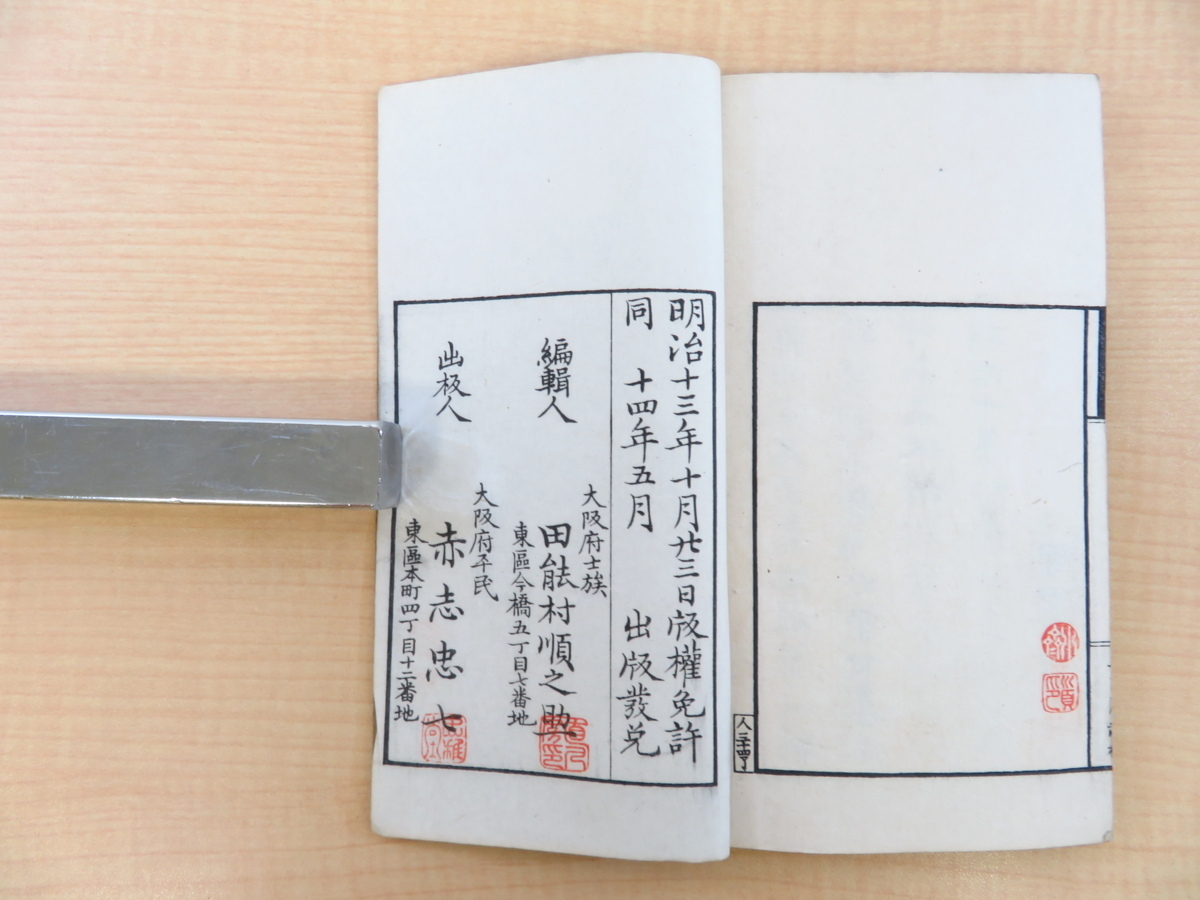 明治十三年十月廿三日版權免許
同 十四年五月 出版發兌
大阪府士族
編輯人 田能村順之助
東區今橋五丁目七番地
大阪府平民
出板人 赤志忠七
東區本町四丁目十二番地